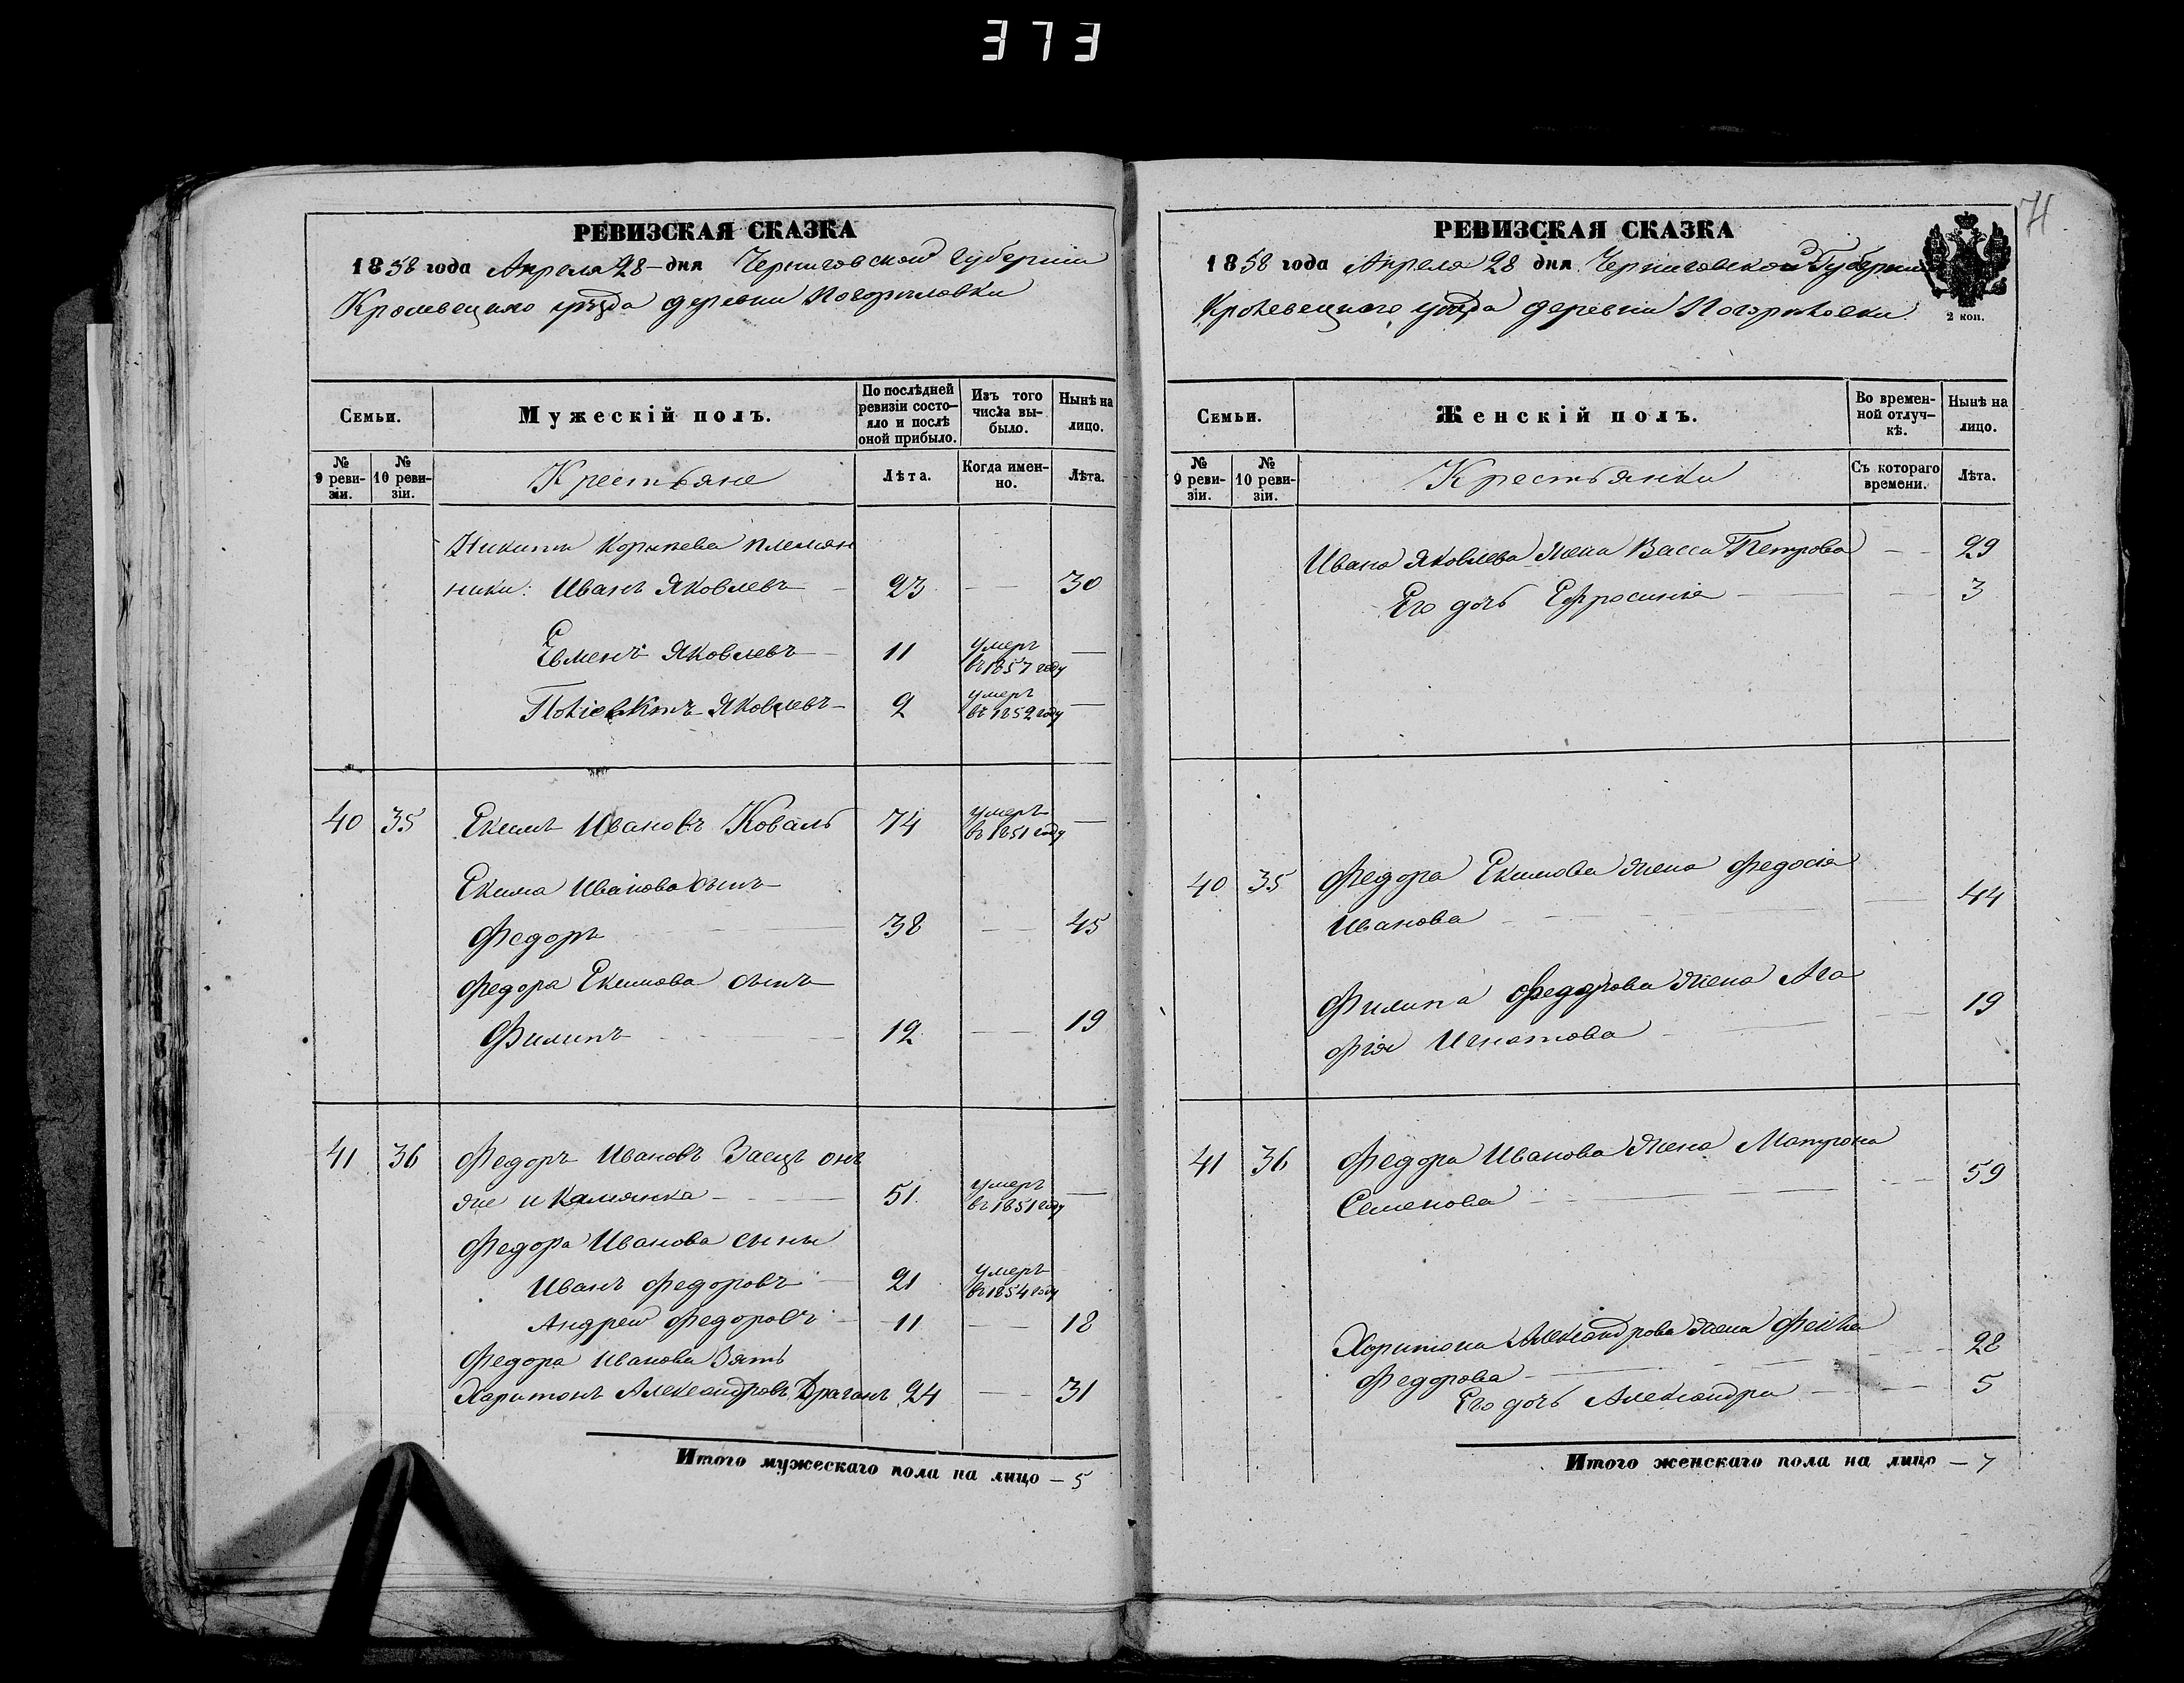 373
РЕВИЗСКАЯ СКАЗКА
1858 года Апреля 28 дня Черниговской Губернии
Кролевецкаго уѣзда деревни Погориловки
Семьи.
Мужескій полъ.
По послѣдней ревизіи состояло и послѣ оной прибыло.
Изъ того числа выбыло.
Нынѣ на лицо.
№ 9 ревизіи.
№ 10 ревизіи.
Крестьяне
Лѣта.
Когда именно.
Лѣта.
Никиты племян
ники: Иванъ Яковлевъ 23 — 30
Евменъ Яковлевъ 11 умеръ въ 1857 году —
Яковлевъ 2 умеръ въ 1852 году —
40 35 Екимъ Ивановъ Коваль 74 умеръ въ 1851 году —
Екима Иванова сынъ
Федоръ 38 — 45
Федора Екимова сынъ
Филипъ 12 — 19
41 36 Федоръ Ивановъ Заецъ онъ
же и Камянка 51 умеръ въ 1851 году —
Федора Иванова сыны
Иванъ Федоровъ 21 умеръ въ 1854 году
Андрей Федоровъ 11 — 18
Федора Иванова Зять
Харитонъ Александровъ Драганъ 24 — 31
Итого мужескаго пола на лицо — 5
71
РЕВИЗСКАЯ СКАЗКА
1858 года Апреля 28 дня Черниговской Губернии
Кролевецкаго уѣзда деревни Погориловки
2 коп.
Семьи.
Женскій полъ.
Во временной отлучкѣ.
Нынѣ на лицо.
№ 9 ревизіи.
№ 10 ревизіи.
Крестьянки
Съ котораго времени.
Лѣта.
Ивана Яковлева жена Васса Петрова — 29
Его дочь Ефросинія — 3
40 35 Федора Екимова жена Федосія
Иванова — 44
Филипа Федорова жена Ага
фія Игнатова — 19
41 36 Федора Иванова жена Матрона
Семенова — 59
Харитона Александрова жена Фекла
Федорова — 28
Его дочь Александра — 5
Итого женскаго пола на лицо — 7